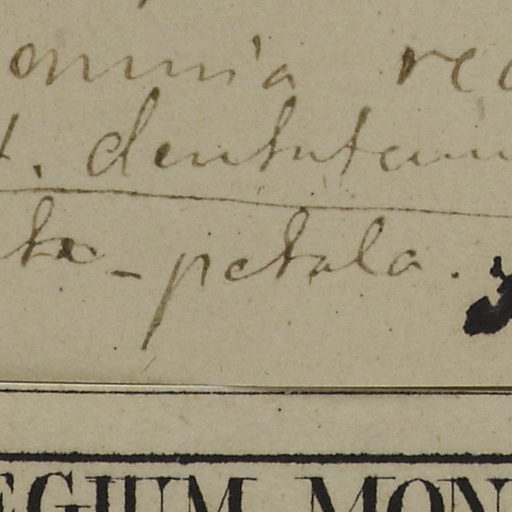 omnia
t. dentatum
petala.
EGIUM MON